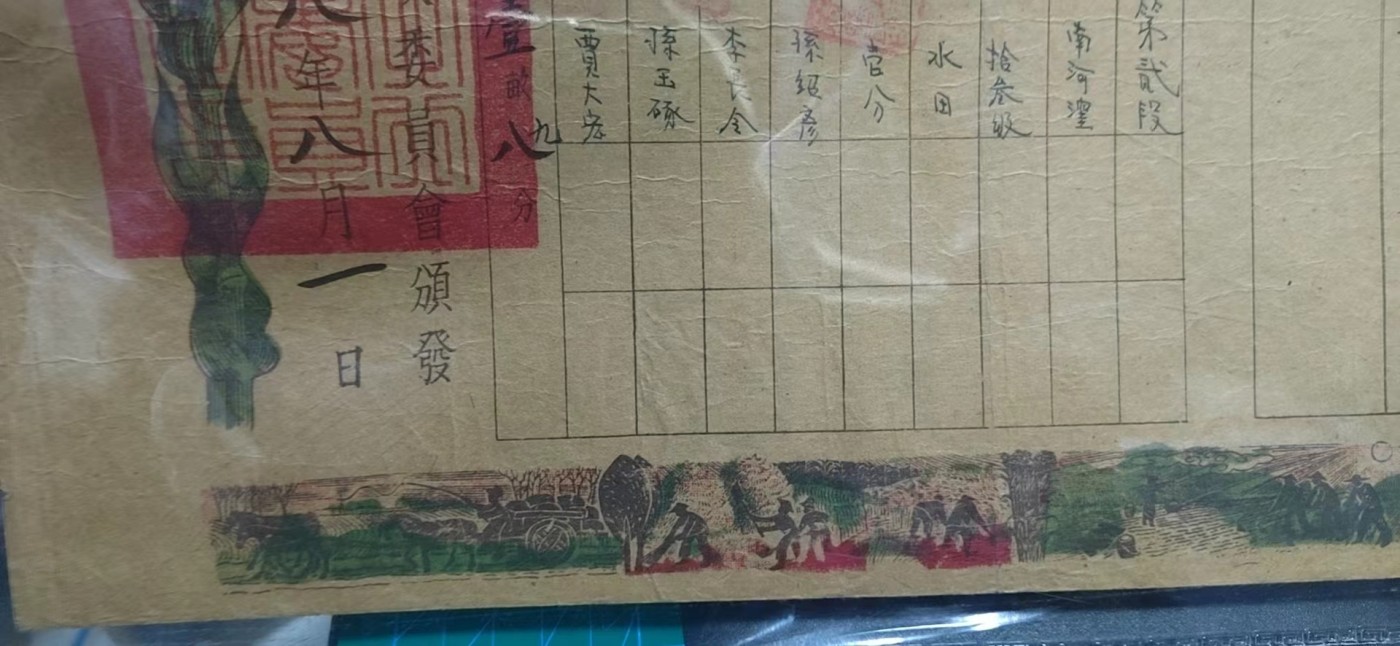 第貳段
南河溼
拾叁級
水田
壹分
孫紹彥
李長令
孫玉琢
賈大宏
壹畝八九分
委員會頒發
八年八月一日